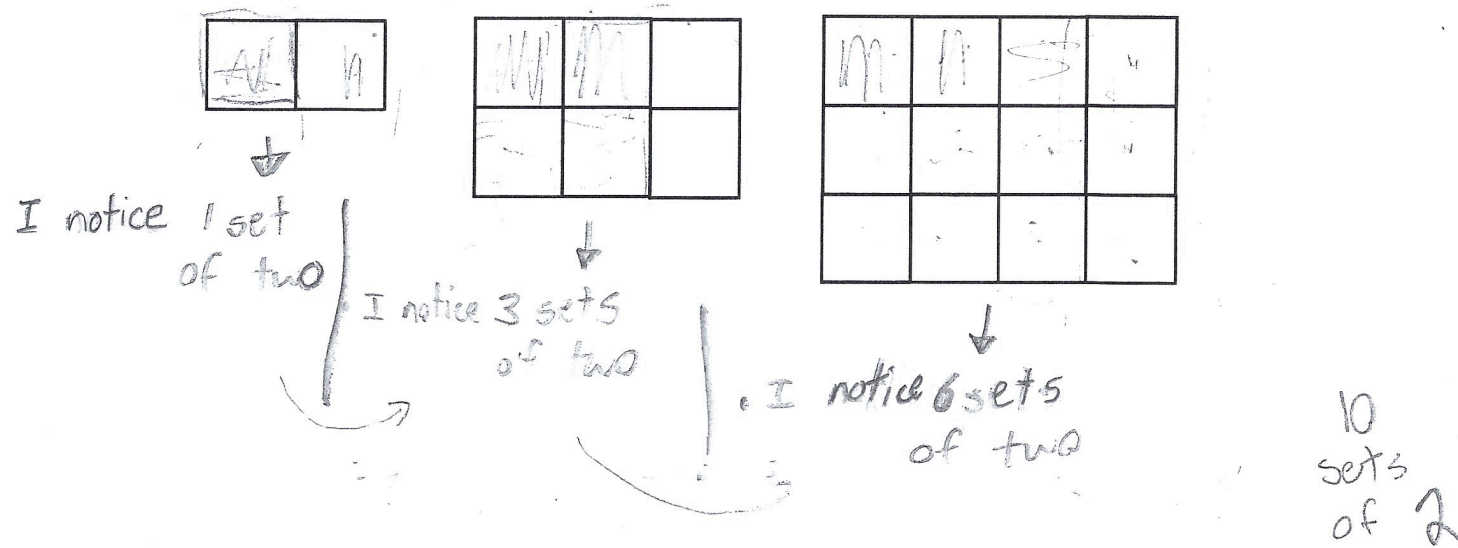 I notice 1 set
of two
I notice 3 sets
of two
I notice 6 sets
of two
10
sets
of 2